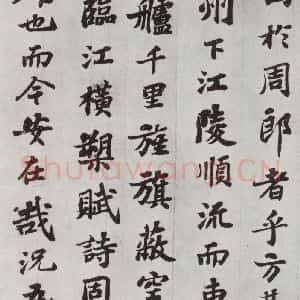 於周郎者乎方其
州下江陵順流而東
艫千里旌旗蔽空
臨江橫槊賦詩固
也而今安在哉況吾
Shufawang.CN